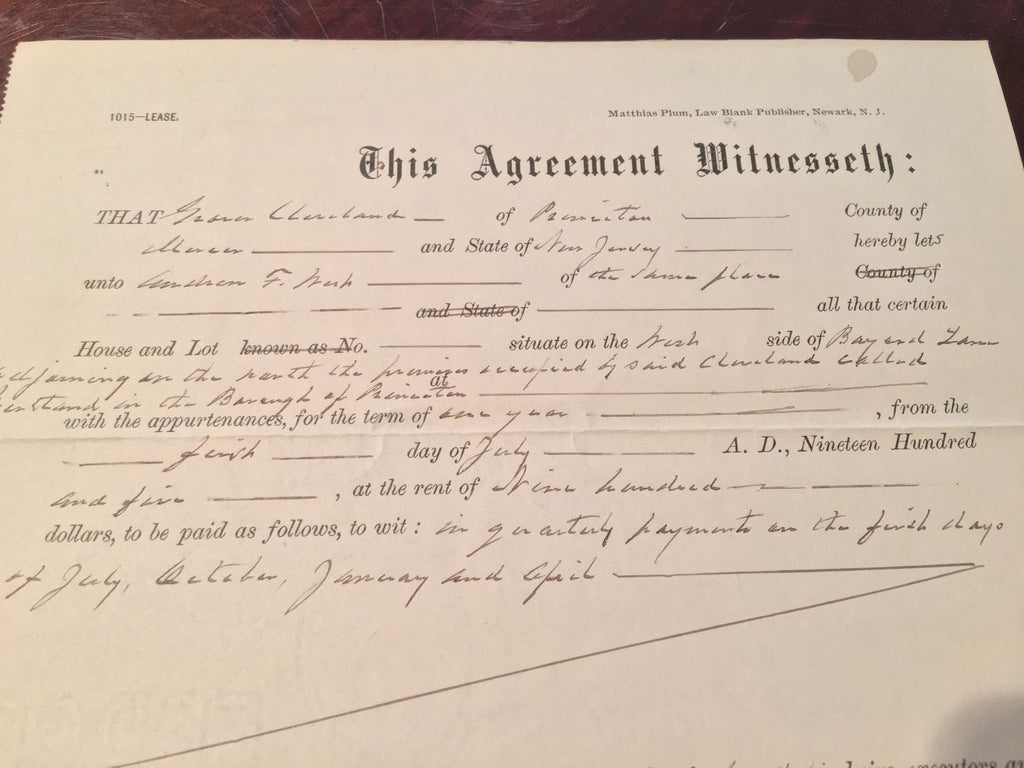 1015—LEASE.
Matthias Plum, Law Blank Publisher, Newark, N. J.
This Agreement Witnesseth:
THAT Grover Cleveland — of Princeton — County of
Mercer — and State of New Jersey — hereby lets
unto Andrew F. West — of the same place County of
— and State of — all that certain
House and Lot known as No. — situate on the West side of Bayard Lane
adjoining on the north the premises occupied by said Cleveland called
Westland in the Borough of Princeton —
at
with the appurtenances, for the term of one year — , from the
— first — day of July — A. D., Nineteen Hundred
and five — , at the rent of Nine hundred —
dollars, to be paid as follows, to wit: in quarterly payments on the first days
of July, October, January and April —